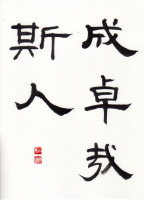 成卓哉
斯人